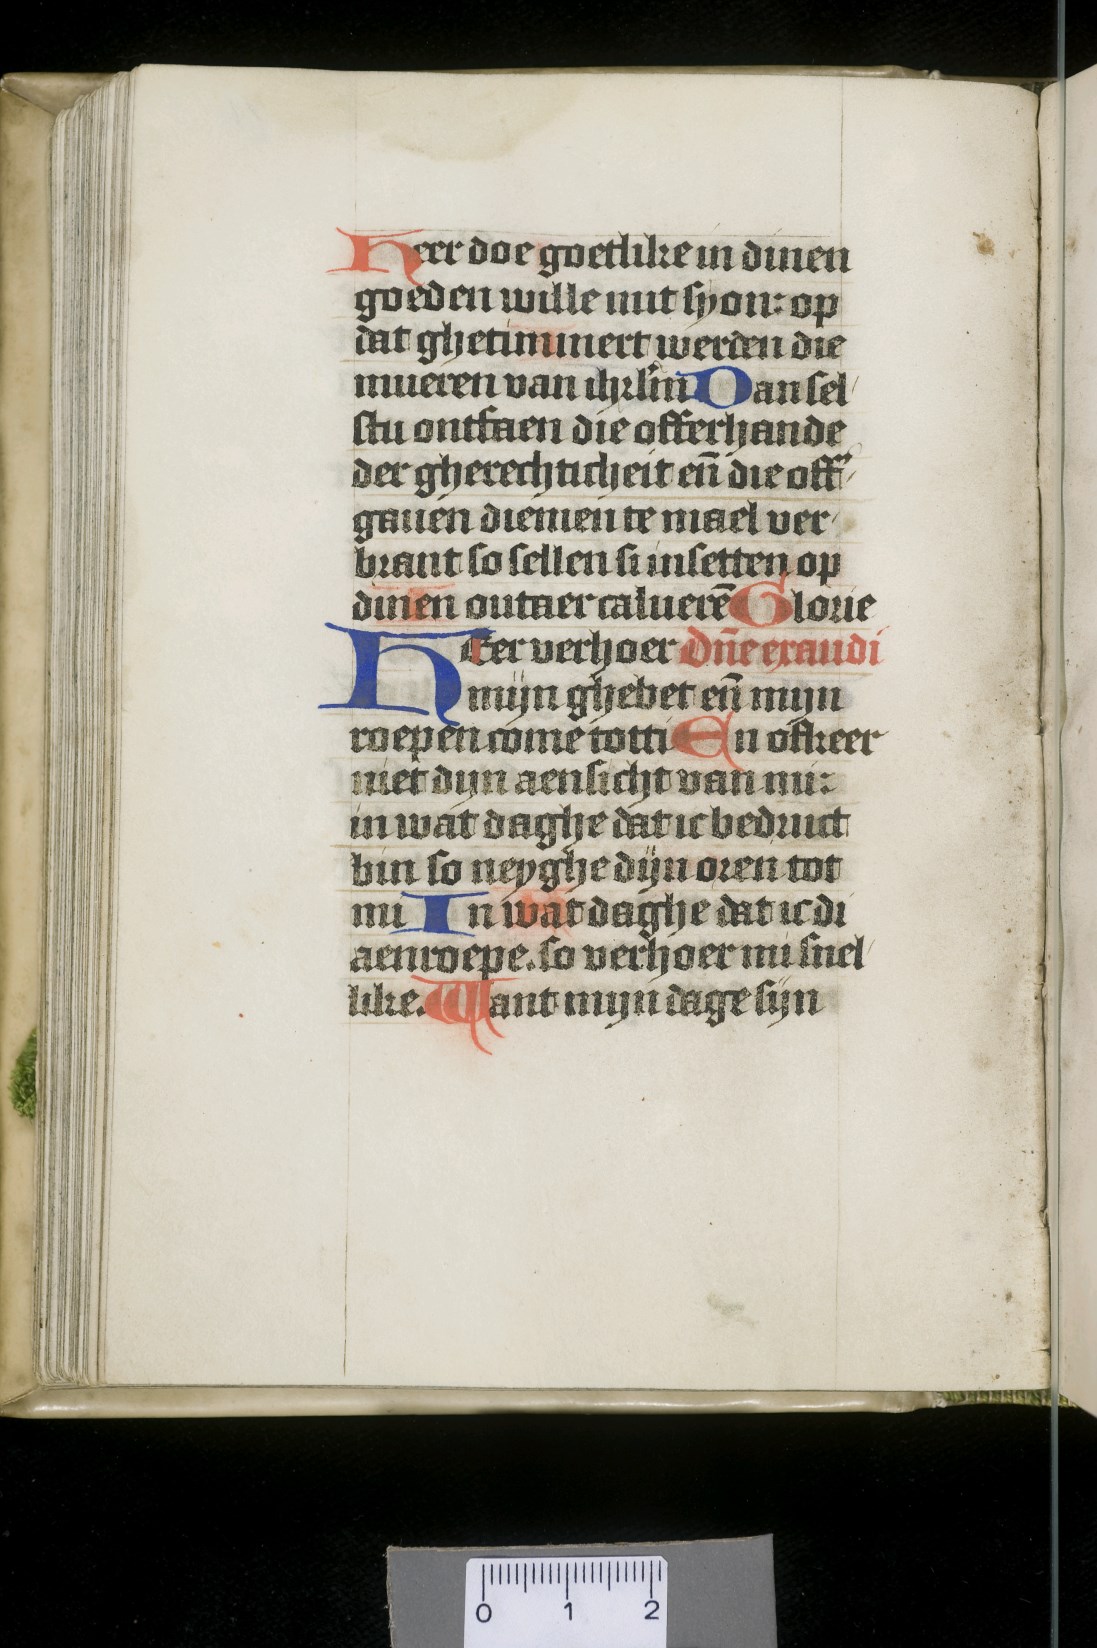 Heer doe goetlike in dinen
goeden wille mit syon: op
dat ghetimmert werden die
mueren van ihrl'm Dan sel/
stu ontfaen die offerhande
der gherechticheit en̄ die off'/
gauen diemen te mael ver/
brant so sellen si insetten op
dinen outaer calueren̄ Glorie
HEer verhoer Dn̄e exaudi
mijn ghebet en̄ mijn
roepen come totti En ofkeer
niet dijn aensicht van mi:
in wat daghe dat ic bedruct
bin so neyghe dijn oren tot
mi In wat daghe dat ic di
aenroepe. so verhoer mi snel/
like. Want mijn dage sijn
0 1 2